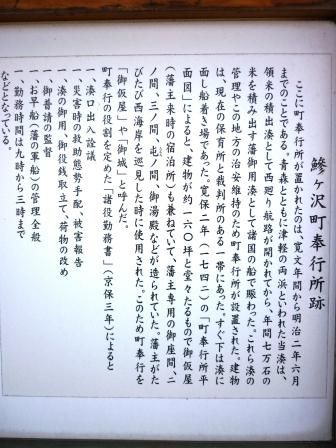 鰺ヶ沢町奉行所跡
ここに町奉行所が置かれたのは、寛文年間から明治二年六月
までのことである。青森とともに津軽の両浜といわれた当湊は、
領米の積出し湊として西廻り航路が開かれてから、年間七万石の
米を積み出す藩御用湊として諸国の船で賑わった。これら湊の
管理やこの地方の治安維持のため町奉行所が設置された。建物
は、現在の保育所と裁判所のある一帯にあった。すぐ下は湊に
面し船着き場であった。寛保二年（一七四二）の「町奉行所平
面図」によると、建物が約一六〇坪と堂々たるもので御仮屋
（藩主来時の宿泊所）も兼ねていて、藩主専用の御座間、二
ノ間、三ノ間、屯ノ間、御湯殿などが造られていた。藩主がた
びたび西海岸を巡見した時に使用された。このため町奉行を
「御仮屋」や「御城」と呼んだ。
町奉行の役割を定めた「諸役勤務書」（京保三年）によると
一、湊口出入詮議
一、災害時の救助態勢手配、被害報告
一、湊の御用、御役銭取立て、荷物の改め
一、御普請の監督
一、お早船（藩の軍船）の管理全般
一、勤務時間は九時から三時まで
などとなっている。